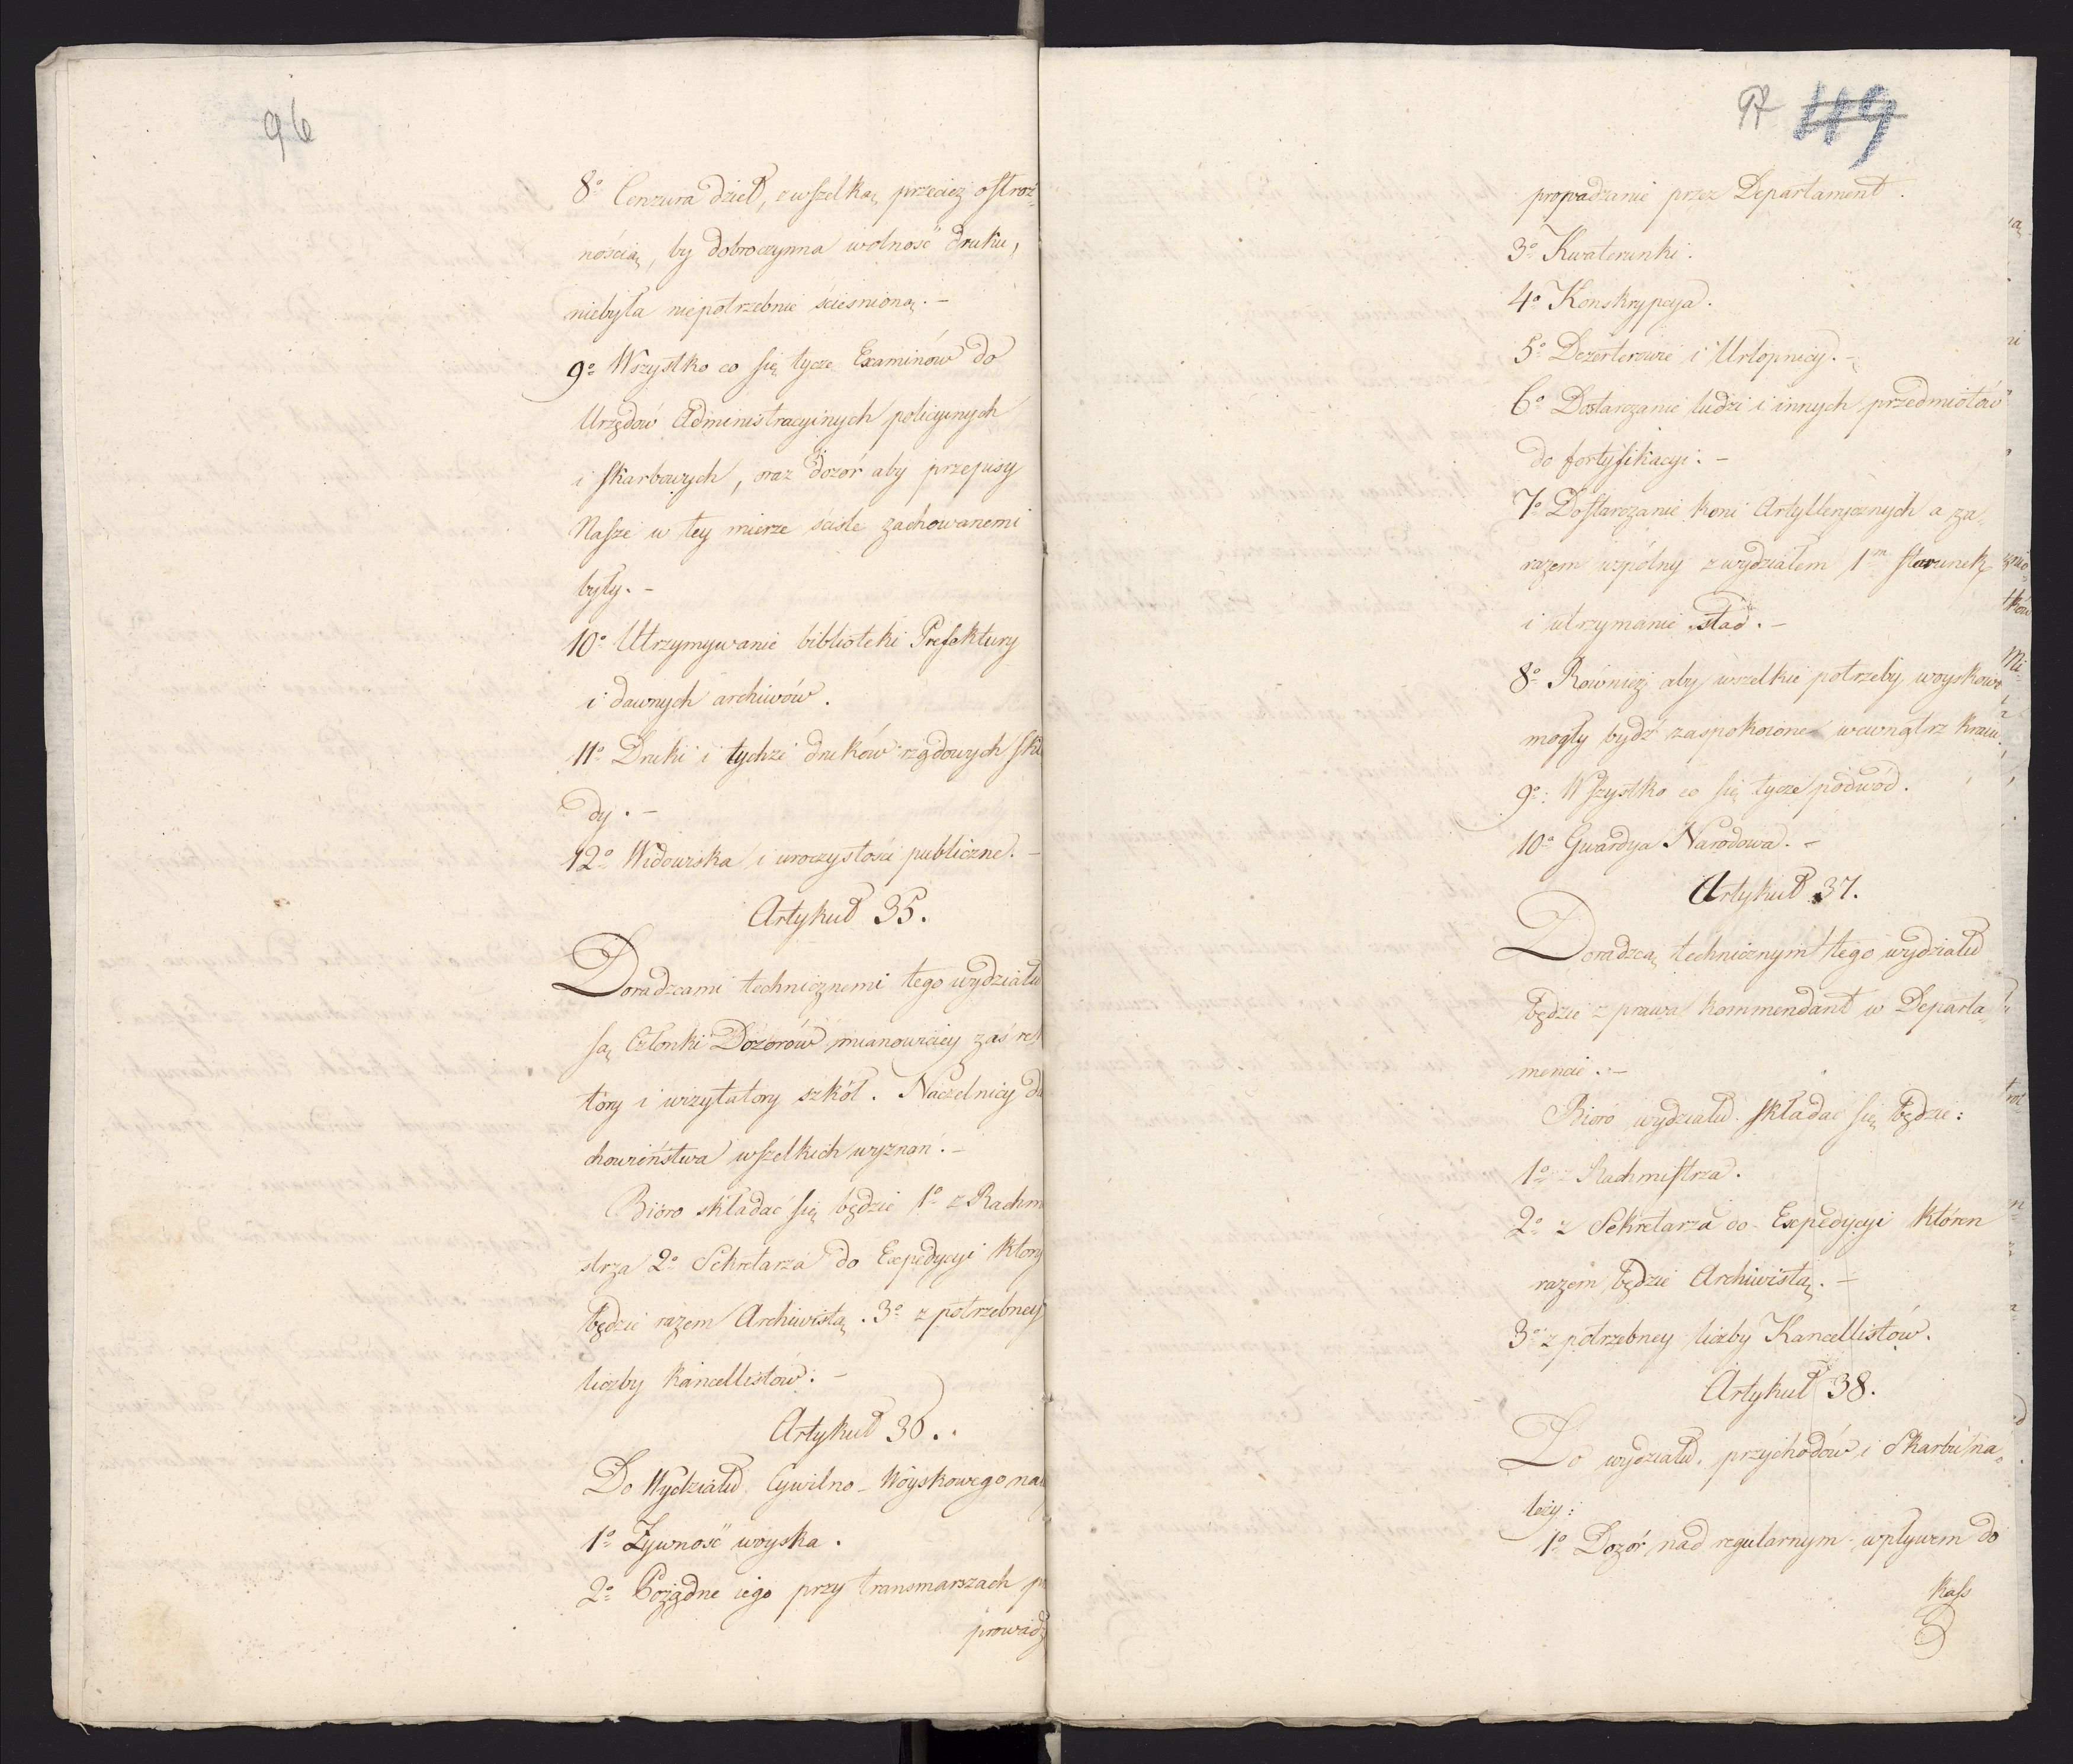 96
8º Cenzura dzieł, z wszelką przecież ostroż-
nością, by dobroczynna wolność druku,
niebyła niepotrzebnie ścieśnioną. –
9º Wszystko co się tycze Examinów do
Urzędów Administracyinych policyinych
i skarbowych, oraz dozór aby przepisy
Nasze w tey mierze ściśle zachowanemi
były. –
10º Utrzymywanie biblioteki Prefektury
i dawnych archiwów.
11º Druki i tychże druków rządowych skła
dy. –
12º Widowiska i uroczystości publiczne. –
Artykuł 35.
Doradzcami technicznemi tego wydziału
są Członki Dozorów mianowiciey zaś rek
tory i wizytatory szkół. Naczelnicy du
chowieństwa wszelkich wyznań. –
Bióro składać się będzie 1º z Rachm
strza 2º Sekretarza do Expedycyi który
będzie razem Archiwistą. 3º z potrzebney
liczby kancellistów. –
Artykuł 36.
Do Wydziału Cywilno-Woyskowego na
1º Żywność woyska.
2º Porządne iego przy transmarszach p
prowadz
97 119
prowadzanie przez Departament.
3º Kwaterunki.
4º Konskrypcya.
5º Dezerterowie i Urlopnicy. –
6º Dostarczanie ludzi i innych przedmiotów
do fortyfikacyi. –
7º Dostarczanie koni Artyllerycznych a za-
razem wspólny z wydziałem 1m starunek
i utrzymanie stad. –
8º Również aby wszelkie potrzeby woyskowe
mogły bydź zaspokoione wewnątrz kraiu.
9º: Wszystko co się tycze podwód.
10º Gwardya Narodowa. –
Artykuł 37.
Doradzcą technicznym tego wydziału
będzie z prawa kommendant w Departa-
mencie. –
Bióro wydziału składać się będzie:
1º z Rachmistrza.
2º z Sekretarza do Expedycyi któren
razem będzie Archiwistą. –
3º z potrzebney liczby Kancellistów.
Artykuł 38.
Do wydziału przychodów i Skarbu na-
leży:
1º Dozór nad regularnym wpływem do
Kass